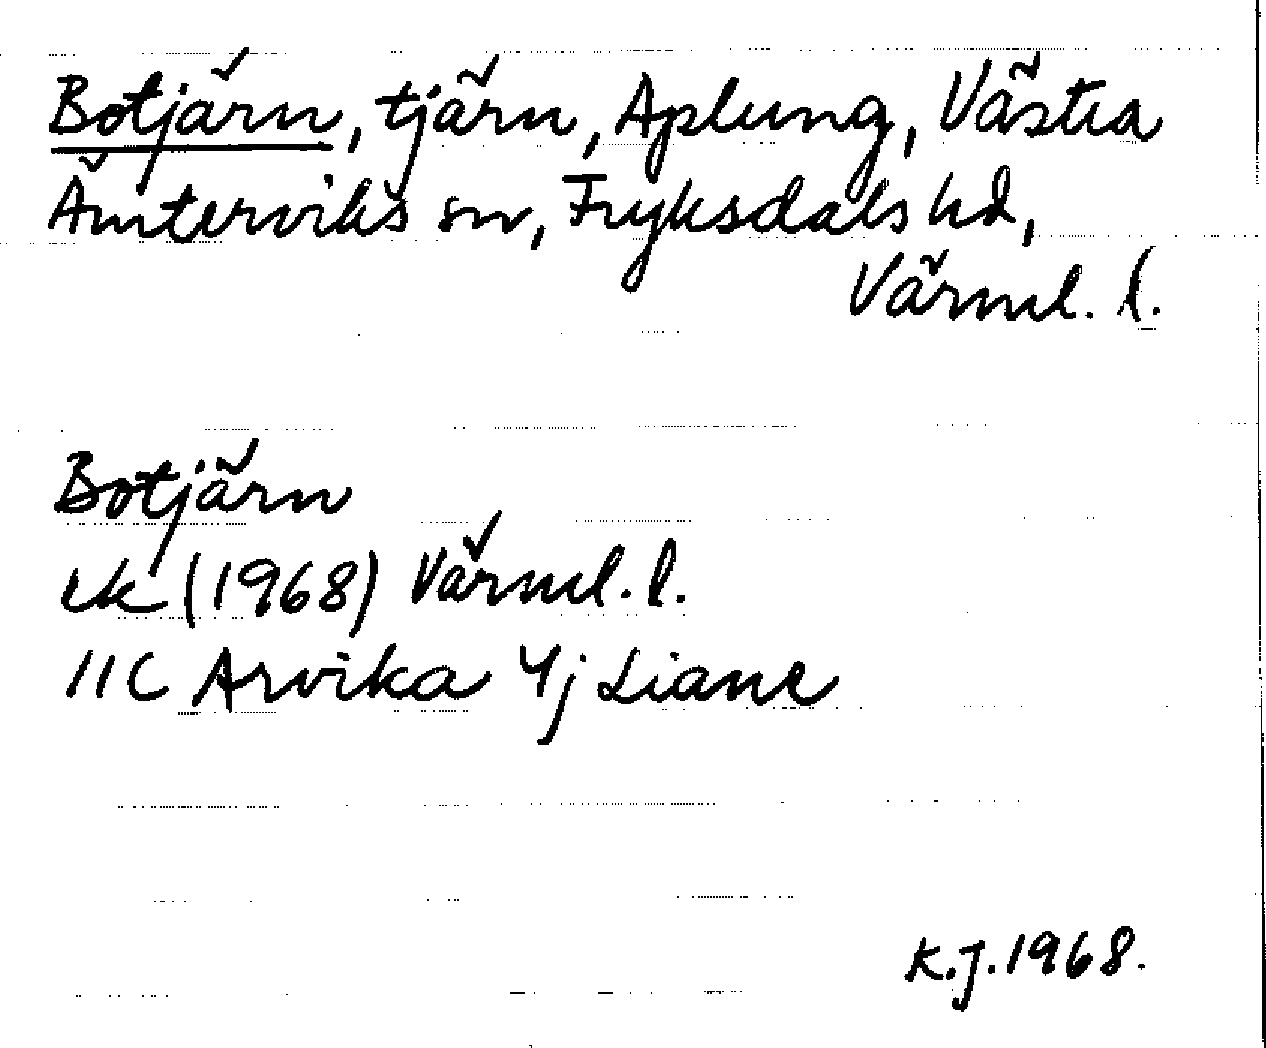 Botjärn, tjärn, Aplung, Västra
Ämterviks sn, Fryksdals hd,
Värml. l.
Botjärn
ek (1968) Värml. l.
11C Arvika 4j Liane
K.J. 1968.